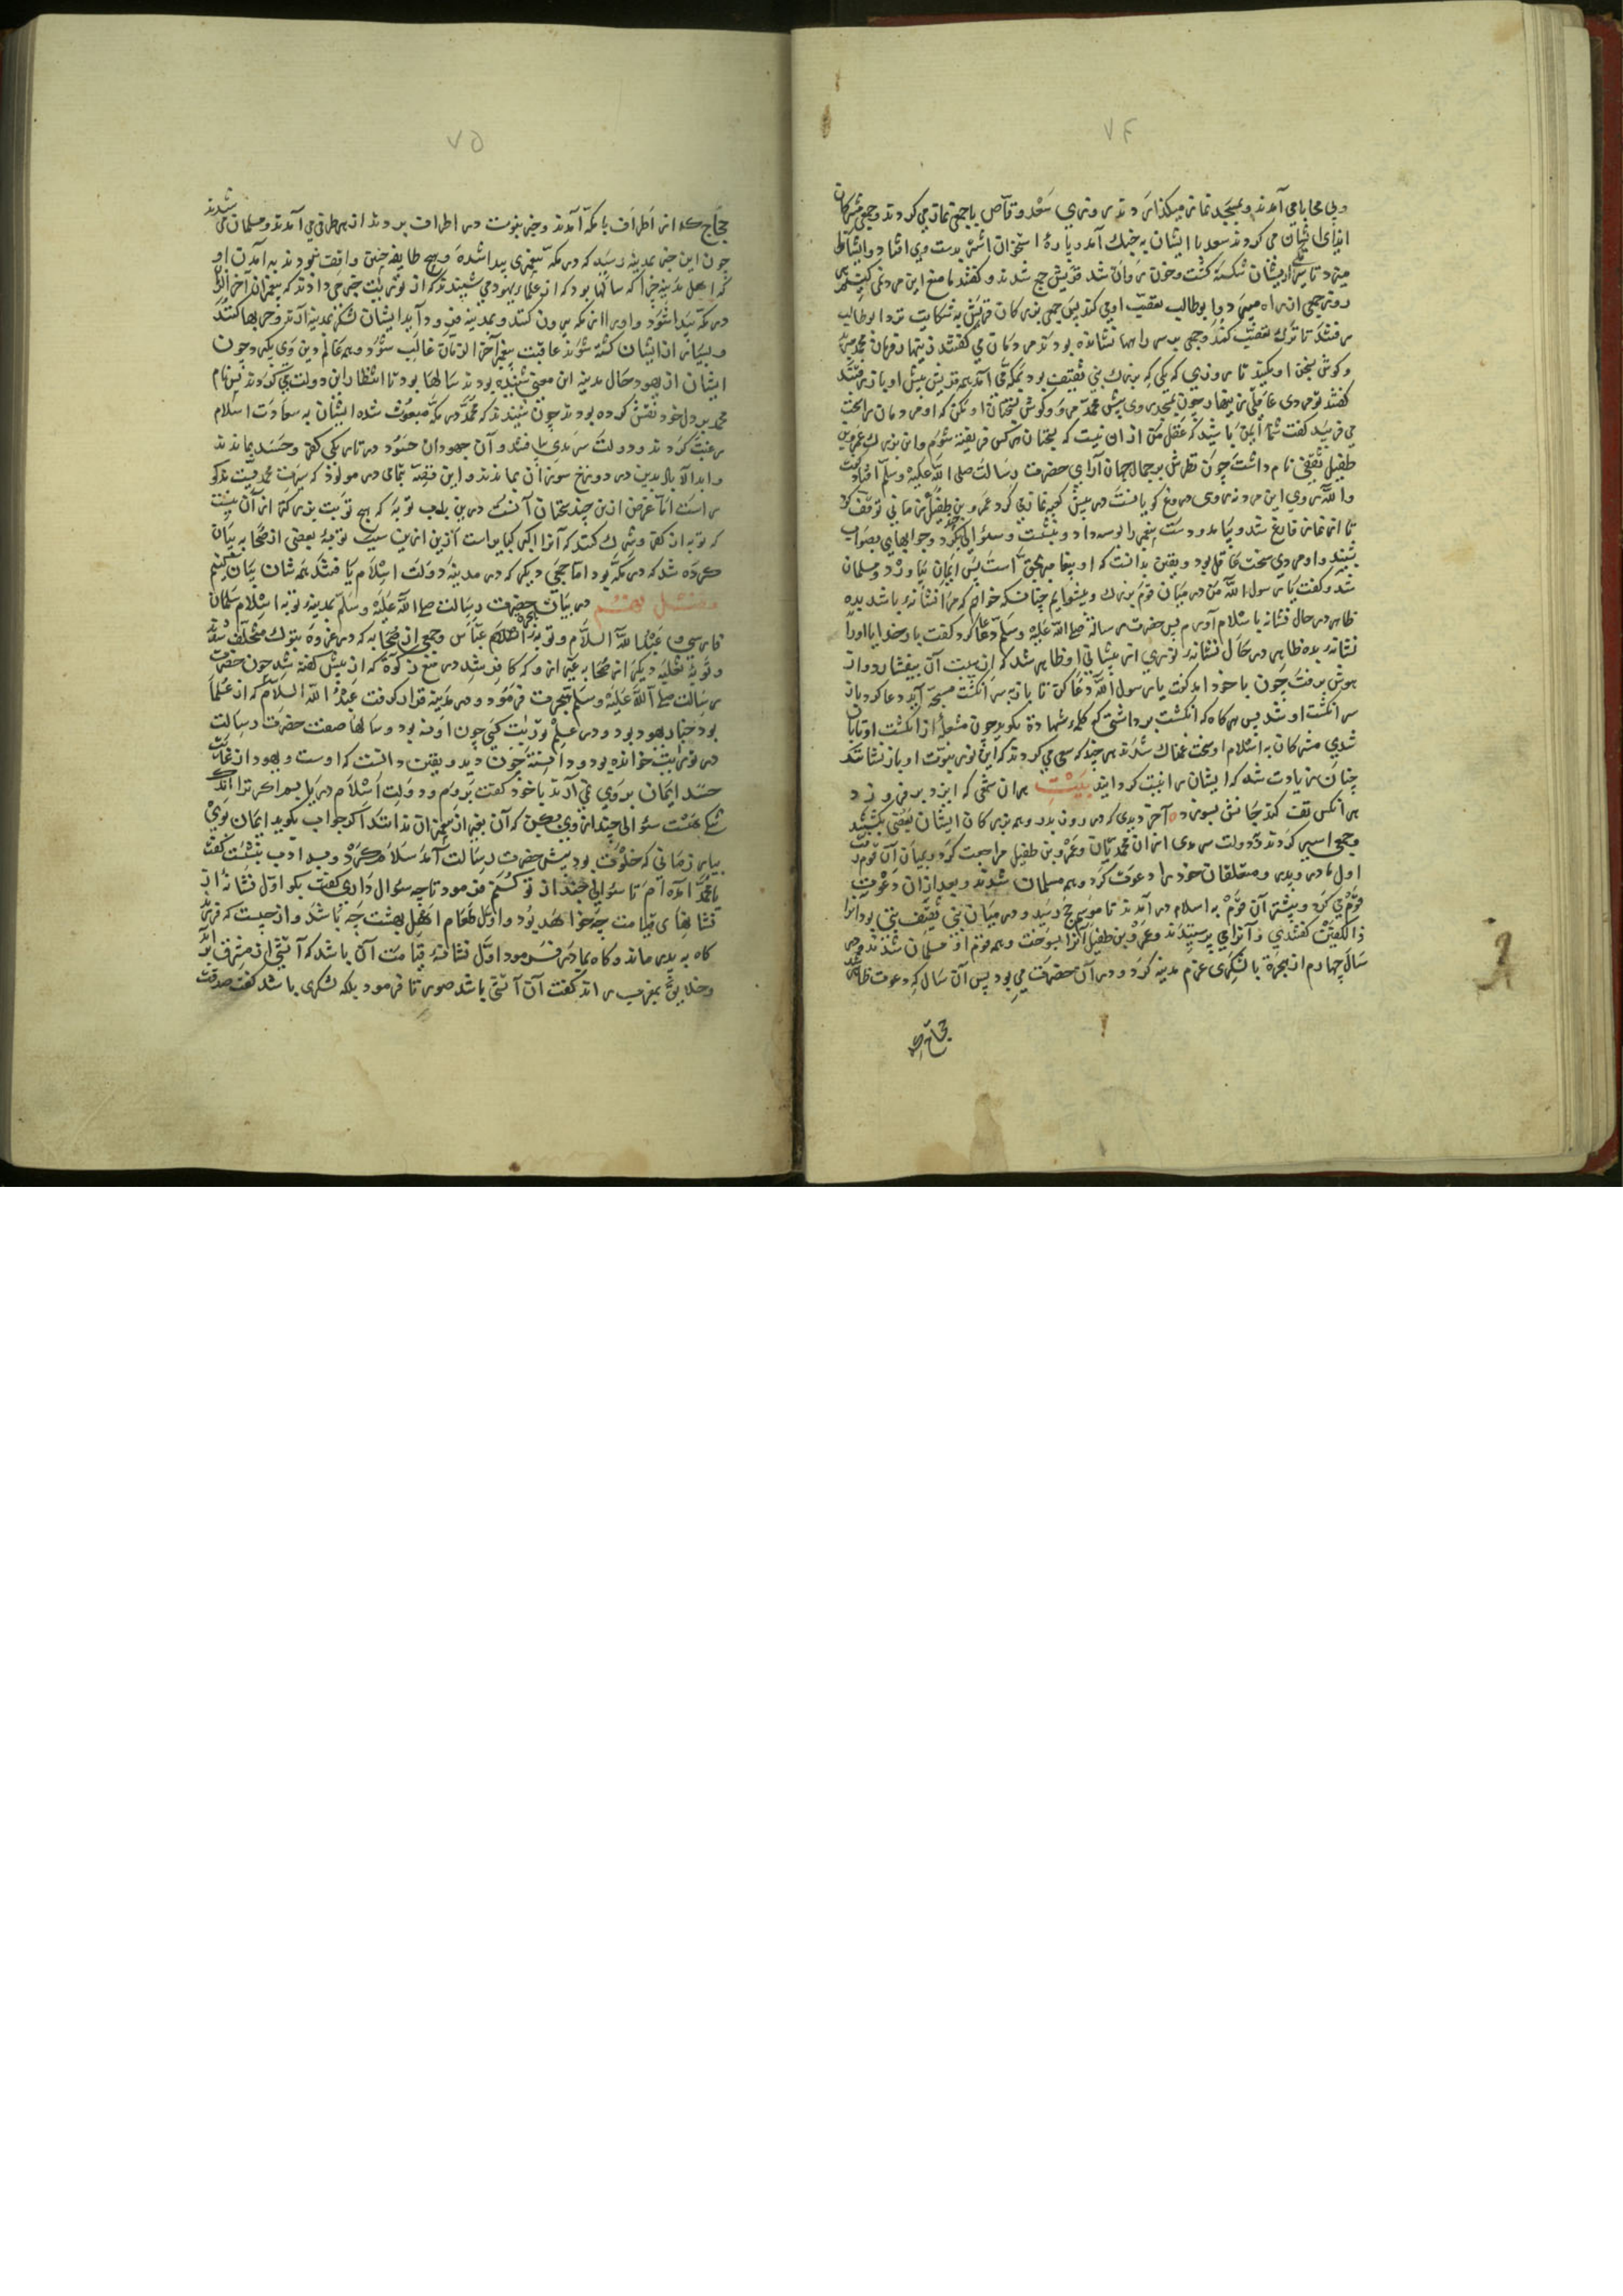 ۷۴
وبی محابا می آمدند وبمسجد نماز میکذاردند روزی سعد وقاص باجمعی نماز می کردند وجمعی مشرکان
ایذای ایشان می کردند سعد با ایشان به جنك آمد و پارهٔ استخوان اشتر بدست وی افتاد وایشانرا
میزد تا سر ایشان شکسته کشت وخون روان شد قریش جمع شدند وکفتند ما منع این مرد نمی کنیم هر
روز جمعی از راه میبرد وابوطالب تعصب او می کند پس جمعی بزرکان قریش به شکایت نزد ابوطالب
رفتند تا ترك تعصب کند وجمعی بر سر راهها نشانده بودند مردمان می کفتند زینهار فرمان محمد مبرید
وکوش بسخن او مکنید تا روزی که یکی که بزرك بنی ثقیف بود بمکه آمد همه قریش پیش او باز رفتند
کفتند تو مردی عاقلی زینهار چون بمسجد روی پیش محمد مرو وکوش بسخنان او مکن که او مردمان را بسخن
می فریبد کفت شما ایمن باشید که عقل من از ان نیست که بسخنان هر کس فریفته شوم وان بزرك عمرو بن
طفیل ثقفی نام داشت چون نظرش بر جمال جهان آرای حضرت رسالت صلی الله علیه وسلم افتاد کفت
والله روی این مرد نه روی دروغ کویانست در پیش کعبه نماز می کرد عمرو بن طفیل زمانی توقف کرد
تا از نماز فارغ شد وبیامد ودست پیغمبر را بوسه داد وبنشست وسئوالی چند بکرد وجوابهای بصواب
شنید واو مردی سخت عاقل بود ویقین بدانست که او پیغامبر بحق است پس ایمان بیاورد ومسلمان
شد وکفت یا رسول الله من در میان قوم بزرك وپیشوایم چنانکه خواهم که مرا نشانهٔ باشد بدیه
ظاهر در حال نشانه باسلام آورم پس حضرت رسالة صلی الله علیه وسلم دعا کرد کفت بار خدایا اورا
نشانهٔ بده ظاهر در حال نشانهٔ نوری از پیشانی او ظاهر شد که از هیبت آن بیفشارد واز
هوش برفت چون با خود امد کفت یا رسول الله دعا کن تا باز به سر انکشت مسبحه آید دعا کرد باز
سر انکشت او شد پس هر کاه که انکشت برداشتی که کلمهٔ شهادة بکوید چون مشعلهٔ از انکشت او تابان
شدی مشرکان به اسلام او سخت غمناك شدند هر چند که سعی می کردند که این نور نبوت او باز نشانند
چنان زیادت شد که ایشان راغبت کردایند بیت هر ان شمعی که ایزد بر فروزد
هر انکس تف کند جانش بسوزد ٥ آخر دیدی که در روز بدر وهمه بزرکان ایشان بعضی بکشتند
وجمعی اسیر کردند ودولت سرمدی از ان محمدیان وعمرو بن طفیل مراجعت کرد وبمیان آن قوم رفت
اول مادر وپدر ومتعلقان خود را دعوت کرد وهمه مسلمان شدند وبعد ازان دعوت
قوم می کرد وبیشتر آن قوم به اسلام در آمدند تا موسم حج رسید ودر میان بنی ثقیف بتی بود آنرا
ذالکفین کفتندی وآنرا می پرستیدند وعمرو بن طفیل آنرا بسوخت وهمه قوم او مسلمان شدند ودر
سال چهارم از هجرة با لشکری عزم مدینه کرد ودر آن حضرت می بود پس آن سال که دعوت ظاهر شد
حجاج که
۷۵
حجاج که از اطراف با مکه آمدند وخبر نبوت در اطراف بردند از هر طرفی می آمدند ومسلمان می شدند
چون این خبر بمدینه رسید که در مکه پیغمبری پیدا شده وهیچ طایفه چنین واقف نبودند به آمدن او
که اهل مدینه چرا که سالها بود که از علماء یهود می شنیدند که از توریت خبر می دادند که پیغمبر آخر الزمان
در مکه پیدا شود واورا از مکه بیرون کنند وبمدینه فرود آید ایشان لشکر بمدینه آرند وحربها کنند
وبسیار از ایشان کشته شوند عاقبت پیغمبر آخر الزمان غالب شود وهمه عالم دین وی بکیرد چون
ایشان از یهود حال مدینه این معنی شنیده بودند سالها بود تا انتظار این دولت می کردند پس نام
محمد بر دل خود نقش کرده بودند چون شنیدند که محمد در مکه مبعوث شده ایشان به سعادت اسلام
رغبت کردند ودولت سرمدی یافتند وآن جهودان حسود در تاریکی کفر وحسد بماندند
وابد الآبدین در دوزخ سوزان بماندند واین قصه تمامی در مولود که سیرت محمدیست مذکور
راست اما غرض ازین چند سخنان آنست درین باب توبه که هیچ توبت بزرکتر از آن نیست
که توبه از کفر وشرك کنند که آنرا اکبر کبایر است ازین سبب توبهٔ بعضی از صحابه بیان
کرده شد که در مکه بود اما جمعی دیکر که در مدینه دولت اسلام یافتند همه شان بیان کنیم
فصل هشتم در بیان هجرت حضرت رسالت صلی الله علیه وسلم بمدینه وتوبه اسلام سلمان
فارسی وعبد الله السلام وتوبه اسلام عباس وجمعی از صحابه که در غزوه تبوك متخلف شدند
وتوبهٔ ثعلبه دیکر از صحابه غیر او که کافر شد در منع زکوة که از پیش کفته شد چون حضرت
رسالت صلی الله علیه وسلم هجرت فرمود ودر مدینه قرار کرفت عبد الله السلام که از علما
بود خیار یهود بود ودر علم توریت کسی چون او نه بود وسالها صفت حضرت رسالت
در توریت خوانده بود ودانسته چون دید ویقین دانست که اوست ویهود از غایت
حسد ایمان بر وی نمی آرند با خود کفت بروم ودولت اسلام دریابم اکر نه اندك
شکی هست سئوالی چند از وی بکنم که آن بغیر از پیغمبران ندانند اکر جواب بکوید ایمان بوی
بیارم زمانی که خلوت بود پیش حضرت رسالت آمد سلام کرد وبه ادب بنشست کفت
یا محمد آمده ام تا سئوالی چند از تو کنم فرمود تا چه سئوال داری کفت بکو اول نشانه از
نشانهای قیامت چه خواهد بود واول طعام اهل بهشت چه باشد واز چیست که فرزند
کاه به پدر ماند وکاه بمادر فرمود اول نشانهٔ قیامت آن باشد که آتشی از مشرق برآید
وخلایق بمغرب راند کفت آن آتش باشد صورتا فرمود بلکه لشکری باشد کفت صدقت